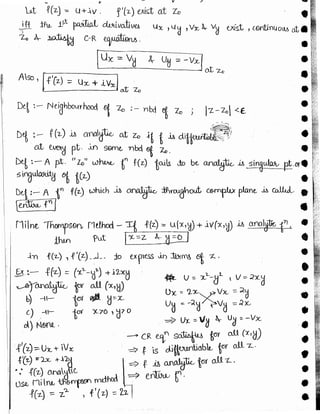 Let f(z) = u + iv. f'(z) exist at Zo
iff the 1st partial derivatives Ux, Uy, Vx & Vy exist, continuous at
Zo & satisfy C-R equations.
Ux = Vy & Uy = -Vx at Zo
Also, f'(z) = Ux + iVx at Zo
Def :- Neighbourhood of Zo :- nbd of Zo ; |Z-Zo| < ε
Def :- f(z) is analytic at Zo if f is differentiable
at every pt. in some nbd of Zo.
Def :- A pt. "Zo" where fn f(z) fails to be analytic is singular pt or
singularity of f(z)
Def :- A fn f(z) which is analytic throughout complex plane is called
entire fn
Milne Thompson Method - If f(z) = u(x,y) + iv(x,y) is analytic fn,
then put x=z & y=0
in f(z), f'(z)... to express in terms of z.
Ex :- f(z) = (x²-y²) + i2xy
a) analytic for all (x,y)
b) -11- for all y=x
c) -11- for x>0, y>0
d) None.
U = x²-y², V = 2xy
Ux = 2x Vx = 2y
Uy = -2y Vy = 2x
⇒ Ux = Vy & Uy = -Vx
→ CR eqn satisfies for all (x,y)
⇒ f is differentiable for all z.
⇒ f is analytic for all z.
⇒ entire fn.
f'(z) = Ux + iVx
f'(z) = 2x + i2y
∵ f(z) analytic
Use Milne thompson method
f(z) = z², f'(z) = 2z